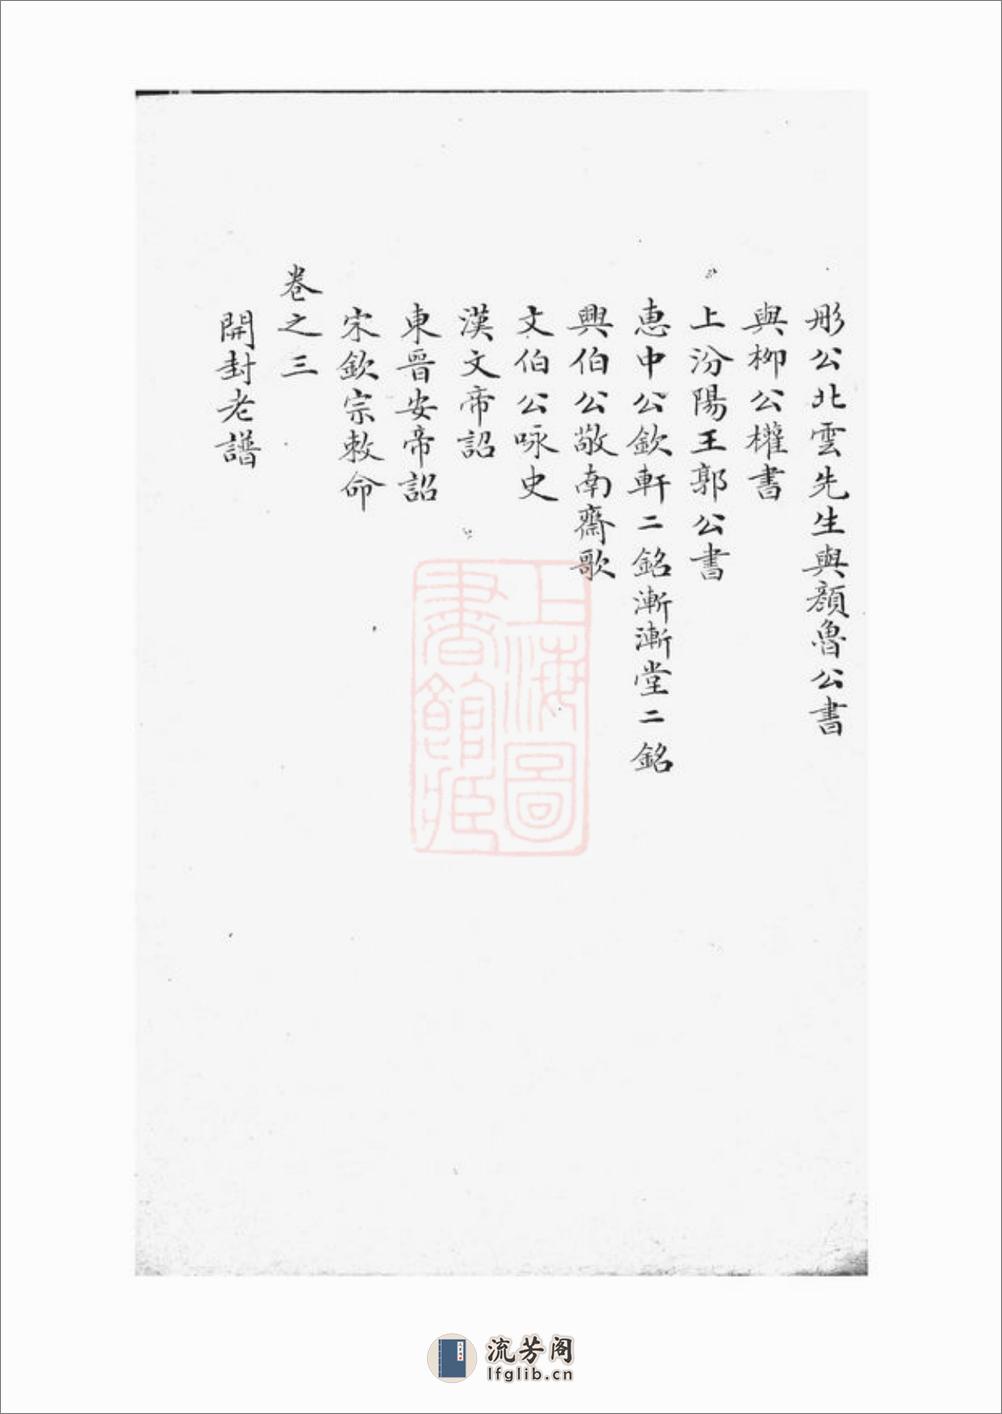 彤公北雲先生與顏魯公書
與柳公權書
上汾陽王郭公書
惠中公欽軒二銘漸漸堂二銘
興伯公敬南齋歌
文伯公咏史
漢文帝詔
東晉安帝詔
宋欽宗敕命
卷之三
開封老譜
上海圖
書館藏
流芳阁
lfglib.cn